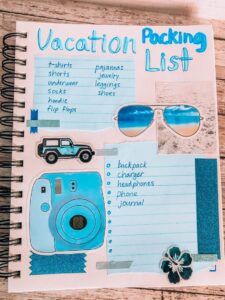 Vacation Packing List
t-shirts
shorts
underwear
socks
hoodie
flip flops
pajamas
jewelry
leggings
shoes
backpack
charger
headphones
phone
journal